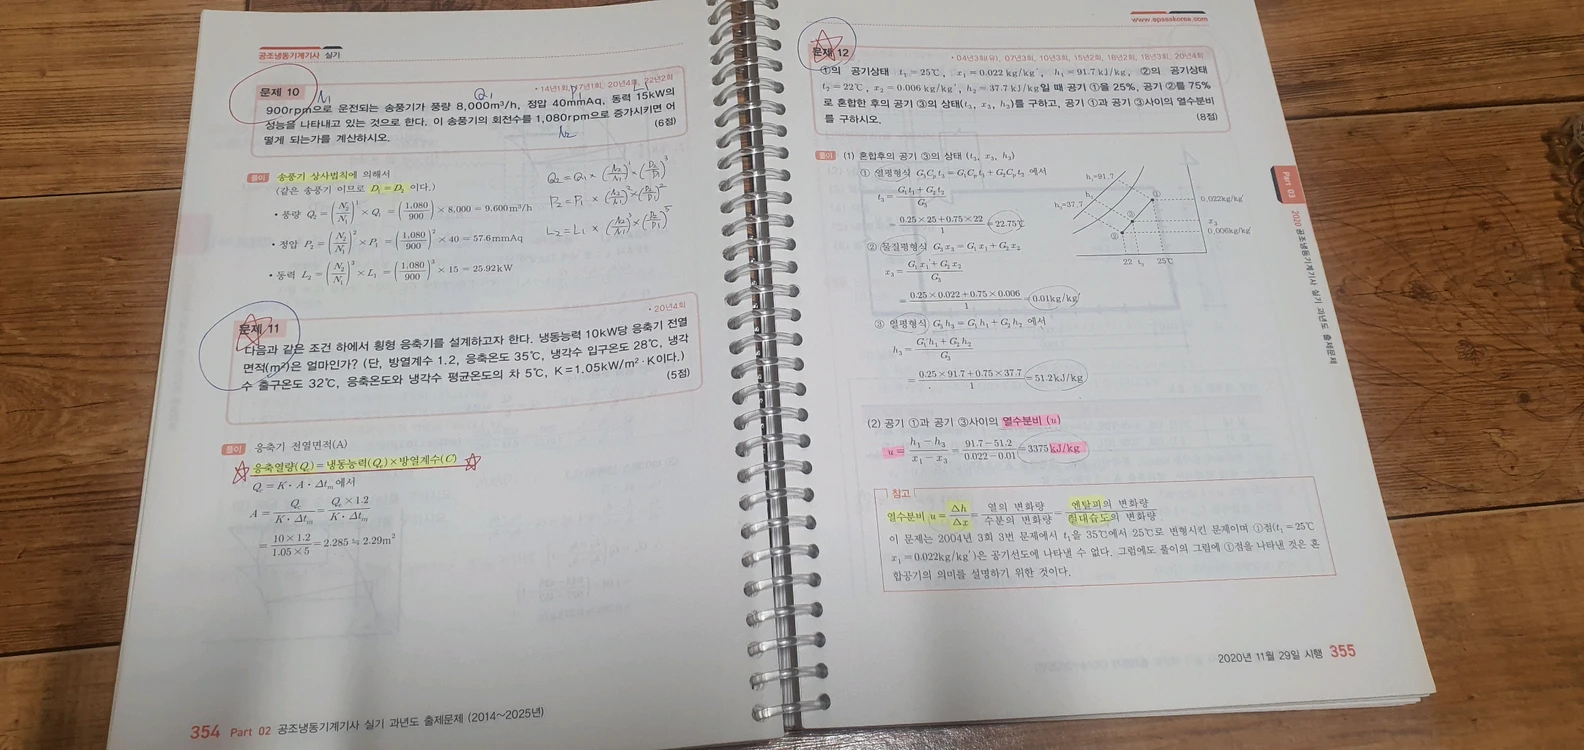 공조냉동기계기사 실기
문제 10
• 14년1회, 17년1회, 20년4회, 22년2회
N₁
Q₁
P₁
L₁
900rpm으로 운전되는 송풍기가 풍량 8,000m³/h, 정압 40mmAq, 동력 15kW의
성능을 나타내고 있는 것으로 한다. 이 송풍기의 회전수를 1,080rpm으로 증가시키면 어
떻게 되는가를 계산하시오.
(6점)
N₂
풀이 송풍기 상사법칙에 의해서
(같은 송풍기 이므로 D₁ = D₂ 이다.)
• 풍량 Q₂ = (N₂/N₁)¹ × Q₁ = (1,080/900) × 8,000 = 9,600m³/h
• 정압 P₂ = (N₂/N₁)² × P₁ = (1,080/900)² × 40 = 57.6mmAq
• 동력 L₂ = (N₂/N₁)³ × L₁ = (1,080/900)³ × 15 = 25.92kW
Q₂ = Q₁ × (N₂/N₁)¹ × (D₂/D₁)³
P₂ = P₁ × (N₂/N₁)² × (D₂/D₁)²
L₂ = L₁ × (N₂/N₁)³ × (D₂/D₁)⁵
문제 11
• 20년4회
다음과 같은 조건 하에서 횡형 응축기를 설계하고자 한다. 냉동능력 10kW당 응축기 전열
면적(m²)은 얼마인가? (단, 방열계수 1.2, 응축온도 35℃, 냉각수 입구온도 28℃, 냉각
수 출구온도 32℃, 응축온도와 냉각수 평균온도의 차 5℃, K=1.05kW/m²·K이다.)
(5점)
풀이 응축기 전열면적(A)
응축열량(Qc) = 냉동능력(Qe) × 방열계수(C)
Qc = K·A·Δtm에서
A = Qc/(K·Δtm) = (Qe × 1.2)/(K·Δtm)
= (10 × 1.2)/(1.05 × 5) = 2.285 ≒ 2.29m²
354 Part 02 공조냉동기계기사 실기 과년도 출제문제 (2014~2025년)
www.epasskorea.com
문제 12
• 04년3회(유), 07년3회, 10년3회, 15년2회, 16년2회, 18년3회, 20년4회
①의 공기상태 t₁ = 25℃, x₁ = 0.022 kg/kg′, h₁ = 91.7 kJ/kg, ②의 공기상태
t₂ = 22℃, x₂ = 0.006 kg/kg′, h₂ = 37.7 kJ/kg일 때 공기 ①을 25%, 공기 ②를 75%
로 혼합한 후의 공기 ③의 상태(t₃, x₃, h₃)를 구하고, 공기 ①과 공기 ③사이의 열수분비
를 구하시오.
(8점)
풀이 (1) 혼합후의 공기 ③의 상태 (t₃, x₃, h₃)
① 열평형식 G₃Cpt₃ = G₁Cpt₁ + G₂Cpt₂ 에서
t₃ = (G₁t₁ + G₂t₂)/G₃
= (0.25 × 25 + 0.75 × 22)/1 = 22.75℃
② 물질평형식 G₃x₃ = G₁x₁ + G₂x₂
x₃ = (G₁x₁ + G₂x₂)/G₃
= (0.25 × 0.022 + 0.75 × 0.006)/1 = 0.01kg/kg′
③ 열평형식 G₃h₃ = G₁h₁ + G₂h₂ 에서
h₃ = (G₁h₁ + G₂h₂)/G₃
= (0.25 × 91.7 + 0.75 × 37.7)/1 = 51.2kJ/kg
h₁=91.7
h₃
h₂=37.7
①
③
②
0.022kg/kg′
x₃
0.006kg/kg′
22 t₃ 25℃
(2) 공기 ①과 공기 ③사이의 열수분비 (u)
u = (h₁ − h₃)/(x₁ − x₃) = (91.7 − 51.2)/(0.022 − 0.01) = 3375kJ/kg
참고
열수분비 u = Δh/Δx = 열의 변화량/수분의 변화량 = 엔탈피의 변화량/절대습도의 변화량
이 문제는 2004년 3회 3번 문제에서 t₁을 35℃에서 25℃로 변형시킨 문제이며 ①점(t₁ = 25℃
x₁ = 0.022kg/kg′)은 공기선도에 나타낼 수 없다. 그럼에도 풀이의 그림에 ①점을 나타낸 것은 혼
합공기의 의미를 설명하기 위한 것이다.
Part 03 2020 공조냉동기계기사 실기 과년도 출제문제
2020년 11월 29일 시행 355